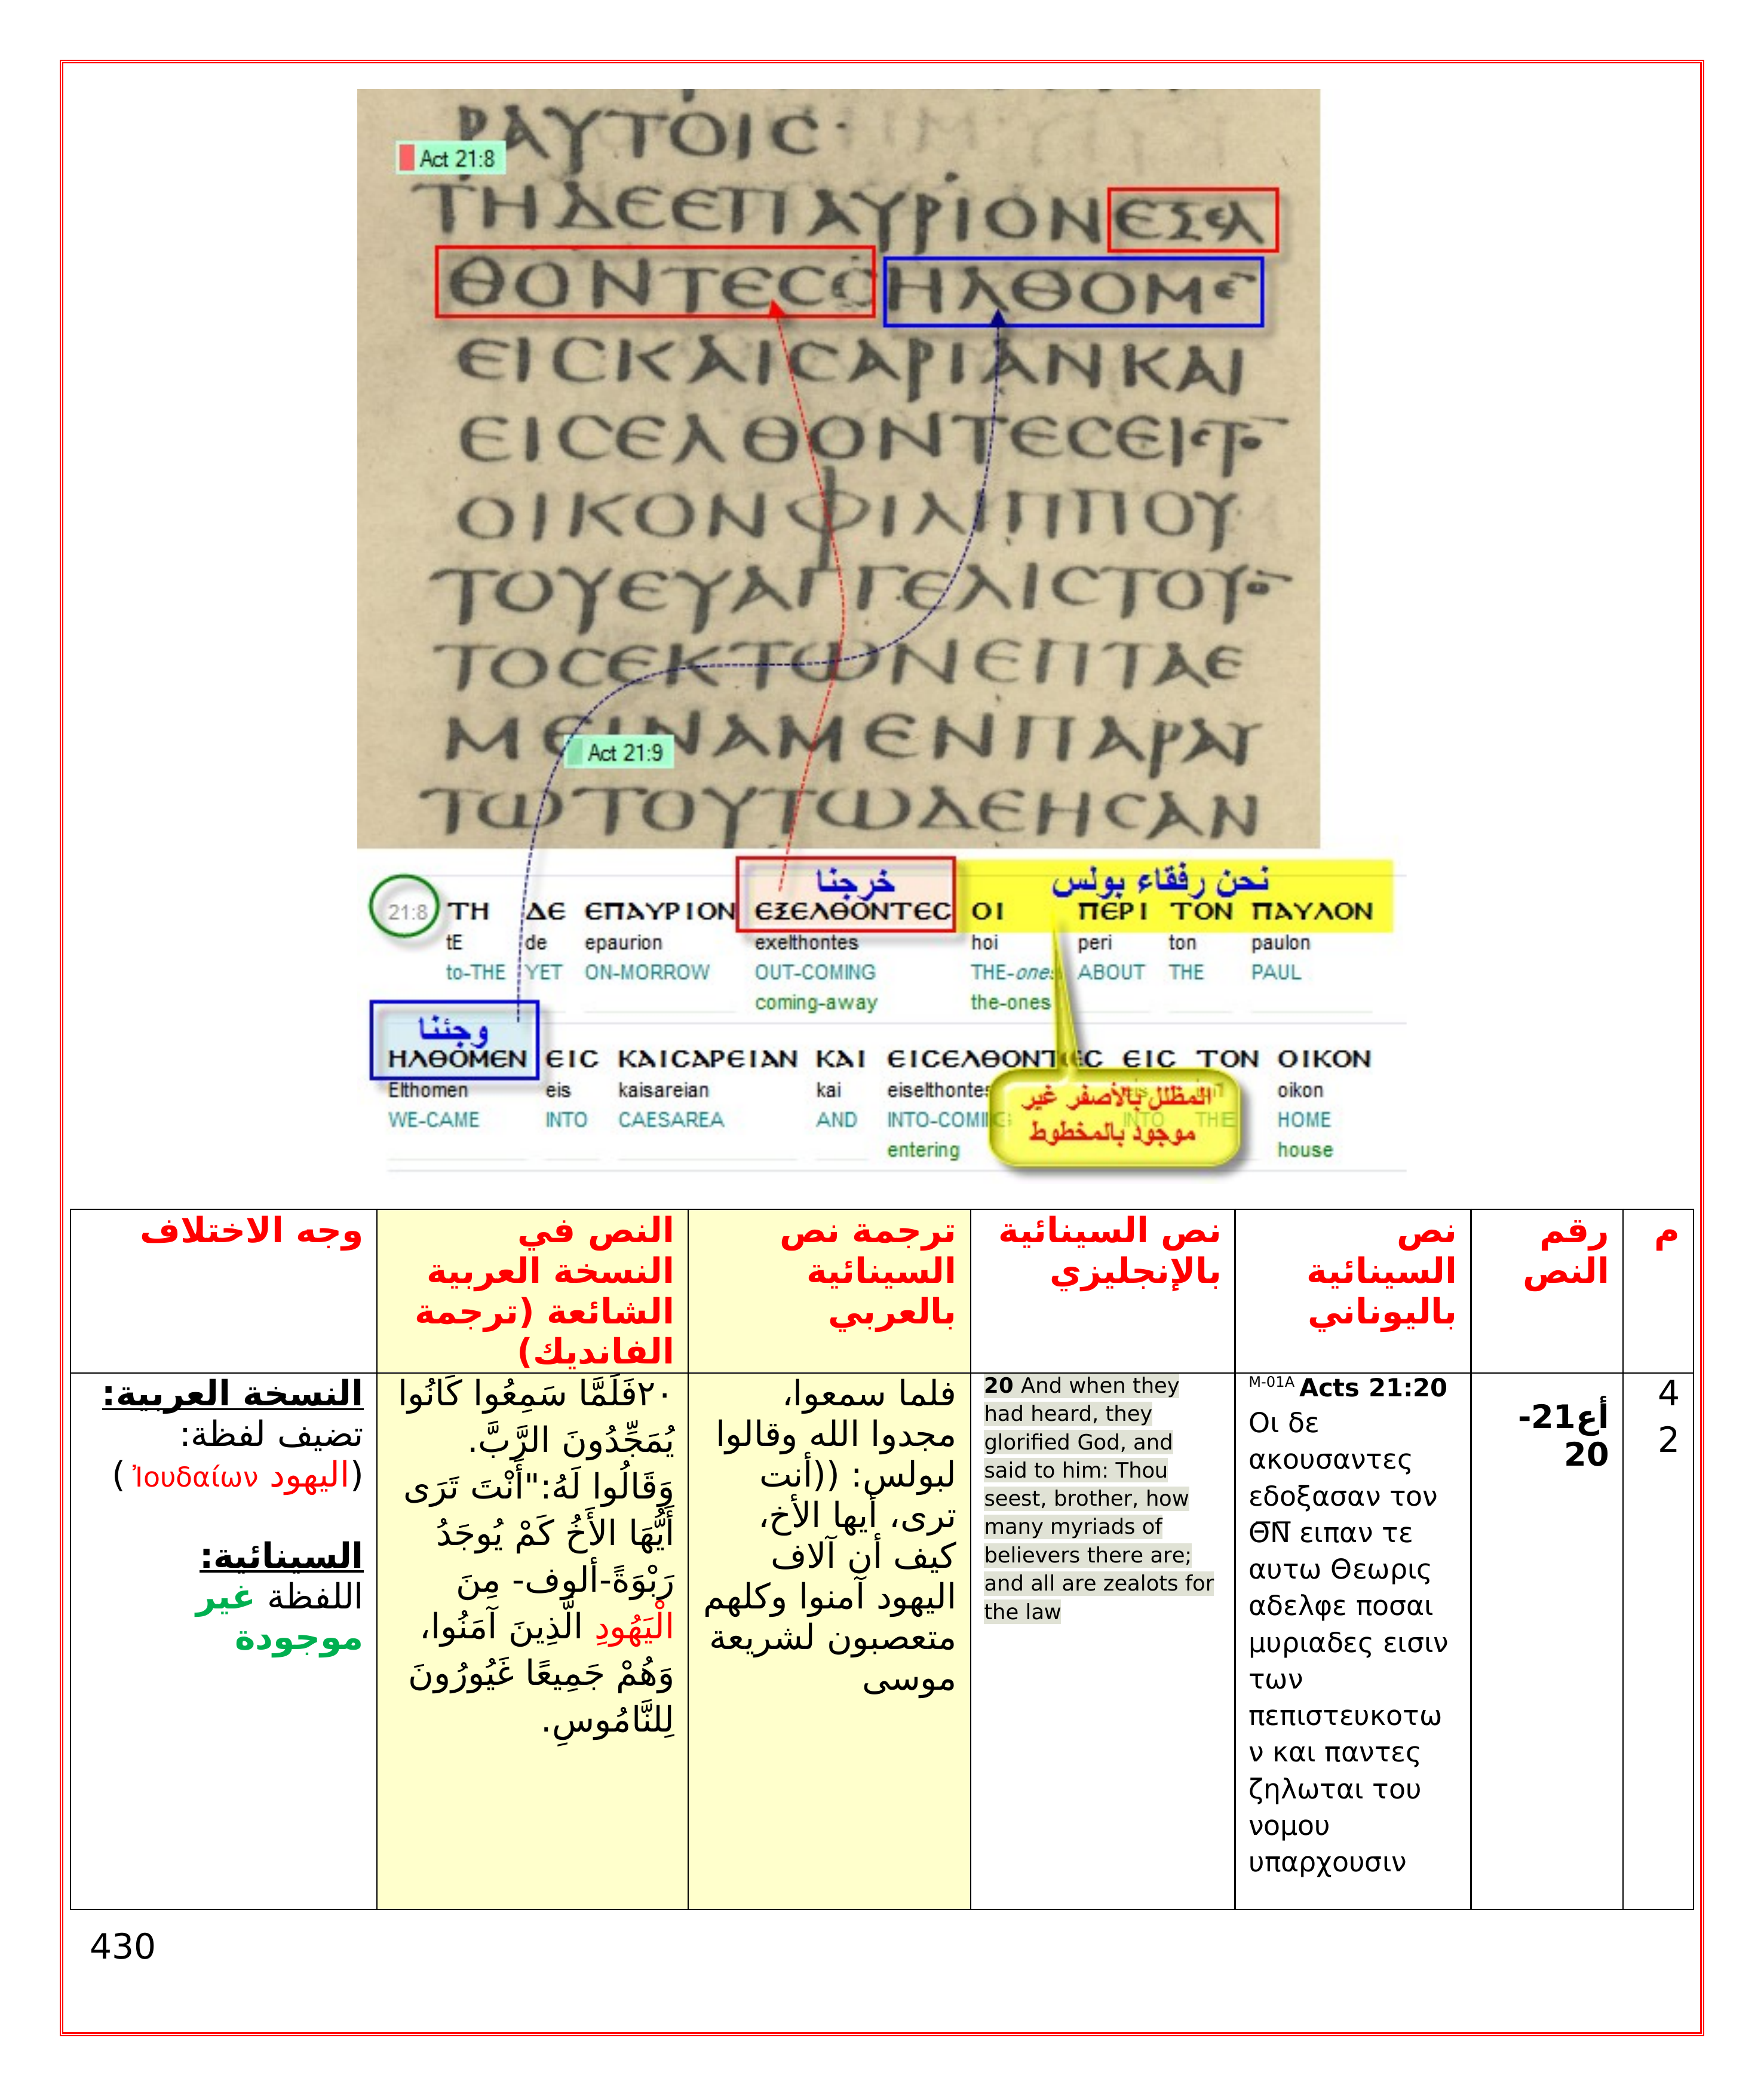 ΡΑΥΤΟΙC·
Act 21:8
ΤΗΔΕΕΠΑΥΡΙΟΝΕΞΕΛ
ΘΟΝΤΕC ΗΛΘΟΜΕ̅
ΕΙCΚΑΙCΑΡΙΑΝΚΑΙ
ΕΙCΕΛΘΟΝΤΕCΕΙCΤΟ̅
ΟΙΚΟΝΦΙΛΙΠΠΟΥ
ΤΟΥΕΥΑΓΓΕΛΙCΤΟΥΟ̅
ΤΟCΕΚΤΩΝΕΠΤΑΕ
ΜΕΙΝΑΜΕΝΠΑΡΑΥ
Act 21:9
ΤΩΤΟΥΤΩΔΕΗCΑΝ
خرجنا
نحن رفقاء بولس
21:8 ΤΗ ΔΕ ΕΠΑΥΡΙΟΝ ΕΞΕΛΘΟΝΤΕC ΟΙ ΠΕΡΙ ΤΟΝ ΠΑΥΛΟΝ
tE de epaurion exelthontes hoi peri ton paulon
to-THE YET ON-MORROW OUT-COMING THE-ones ABOUT THE PAUL
coming-away the-ones
وجئنا
ΗΛΘΟΜΕΝ ΕΙC ΚΑΙCΑΡΕΙΑΝ ΚΑΙ ΕΙCΕΛΘΟΝΤΕC ΕΙC ΤΟΝ ΟΙΚΟΝ
Elthomen eis kaisareian kai eiselthontes eis ton oikon
WE-CAME INTO CAESAREA AND INTO-COMING INTO THE HOME
entering house
المظلل بالأصفر غير
موجود بالمخطوط
م
رقم
النص
نص
السينائية
باليوناني
نص السينائية
بالإنجليزي
ترجمة نص
السينائية
بالعربي
النص في
النسخة العربية
الشائعة (ترجمة
الفانديك)
وجه الاختلاف
4
2
أع21-
20
M-01A Acts 21:20
Οι δε
ακουσαντες
εδοξασαν τον
Θ̅Ν̅ ειπαν τε
αυτω Θεωρις
αδελφε ποσαι
μυριαδες εισιν
των
πεπιστευκοτω
ν και παντες
ζηλωται του
νομου
υπαρχουσιν
20 And when they
had heard, they
glorified God, and
said to him: Thou
seest, brother, how
many myriads of
believers there are;
and all are zealots for
the law
فلما سمعوا،
مجدوا الله وقالوا
لبولس: ((أنت
ترى، أيها الأخ،
كيف أن آلاف
اليهود آمنوا وكلهم
متعصبون لشريعة
موسى
٢٠فَلَمَّا سَمِعُوا كَانُوا
يُمَجِّدُونَ الرَّبَّ.
وَقَالُوا لَهُ:"أَنْتَ تَرَى
أَيُّهَا الأَخُ كَمْ يُوجَدُ
رَبْوَةً-ألوف- مِنَ
الْيَهُودِ الَّذِينَ آمَنُوا،
وَهُمْ جَمِيعًا غَيُورُونَ
لِلنَّامُوسِ.
النسخة العربية:
تضيف لفظة:
(اليهود Ἰουδαίων )
السينائية:
اللفظة غير
موجودة
430